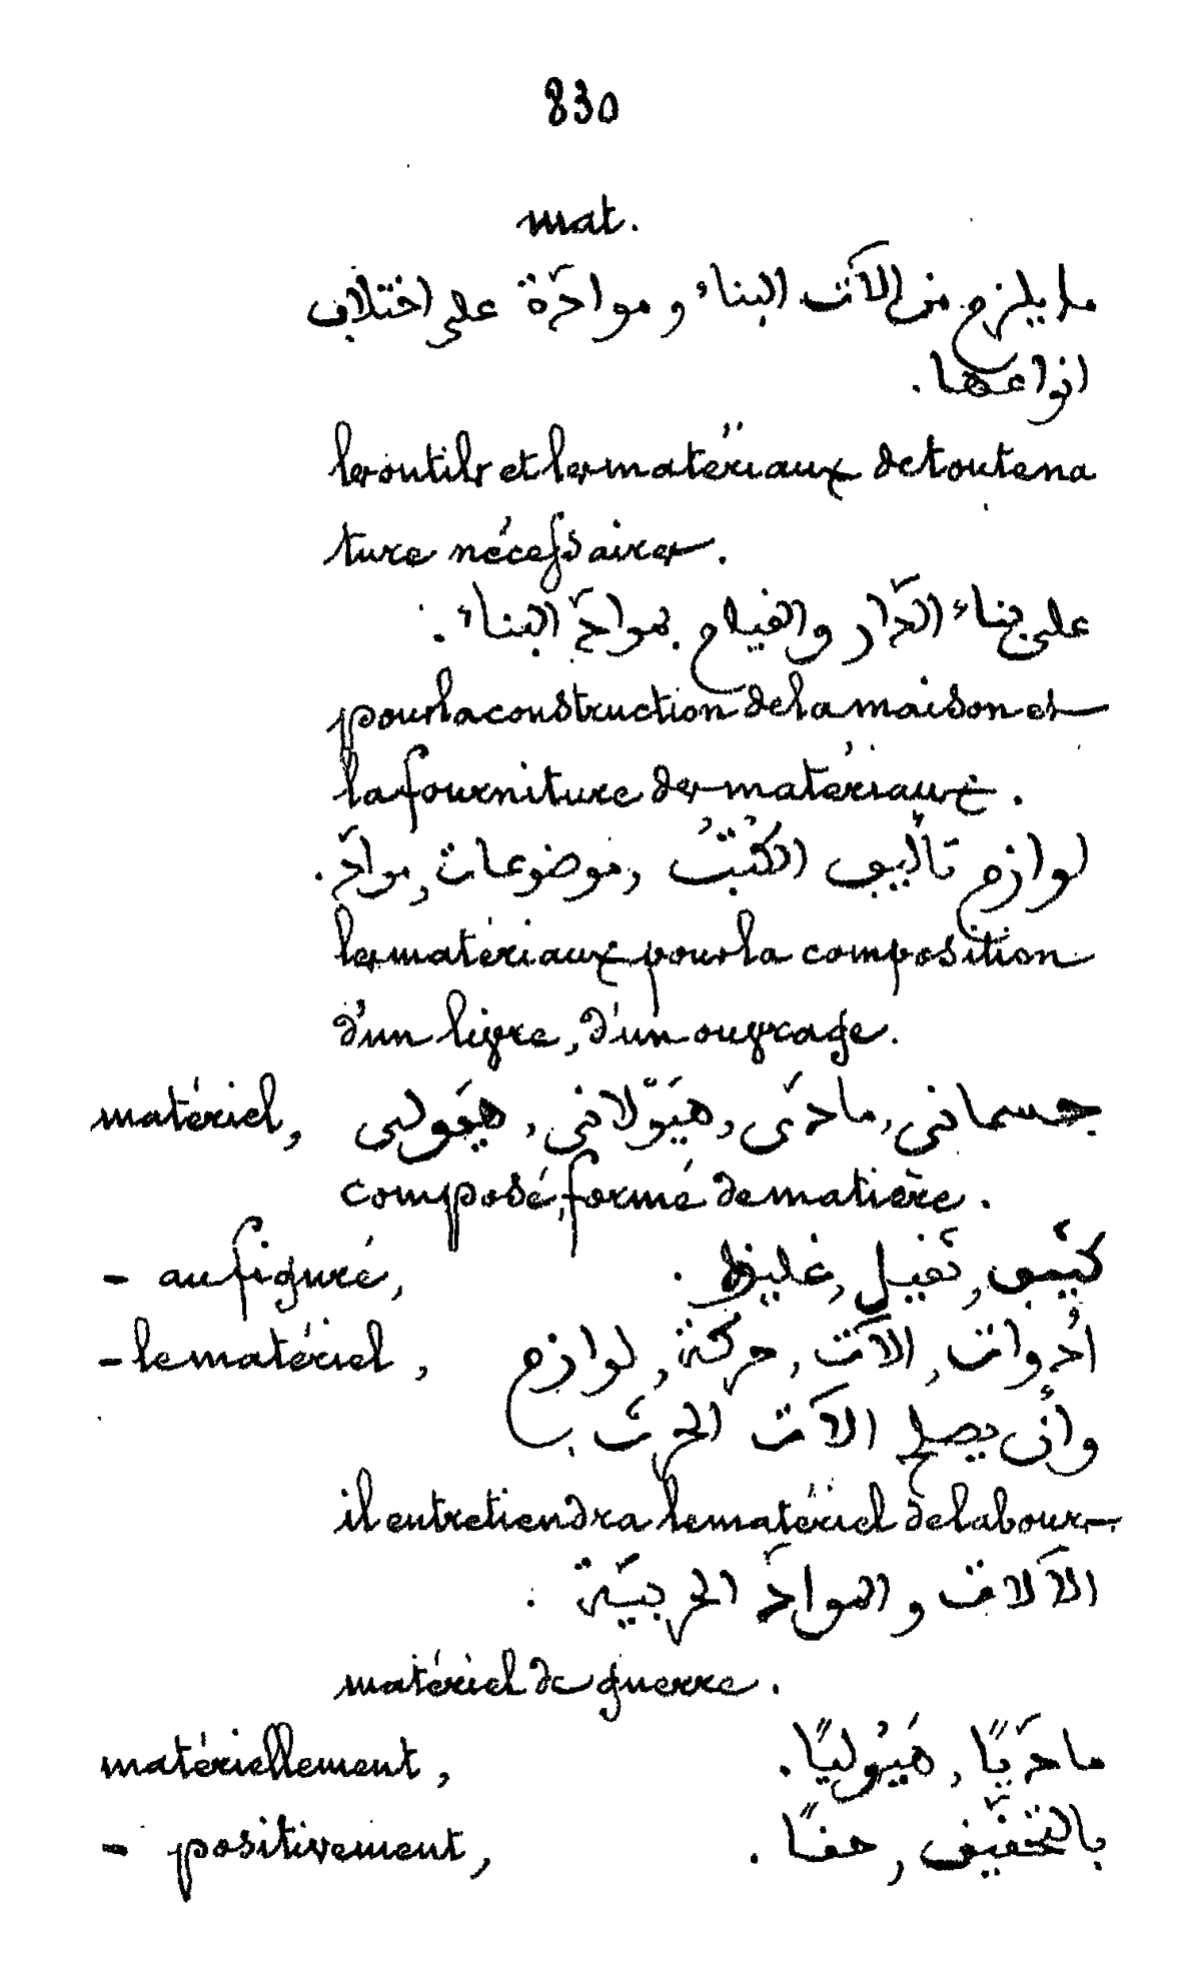 830
mat.
ما يلزم من الآت البناء و موادّة على اختلاف
انواعها.
les outils et les matériaux de toute na
ture nécessaires.
على بناء الدّار والقيام بموادّ البناء.
pour la construction de la maison et
la fourniture des matériaux.
لوازم تأليف الكُتُبُ, موضوعات, موادّ.
les matériaux pour la composition
d'un livre, d'un ouvrage.
matériel, جسمانى, مادّى, هَيَوّلانى, هيَولى
composé, formé de matière.
- au figuré, كثيف, ثقيل, غليظ.
- le matériel, أدوات, الآت, حركة, لوازم
وأنى يصلح الآت الحرث.
il entretiendra le matériel de labour.
الآلات والموادّ الحربيّة.
matériel de guerre.
matériellement, مادّيًا, هَيُوليًا.
- positivement, بالتحقيق, حقًا.